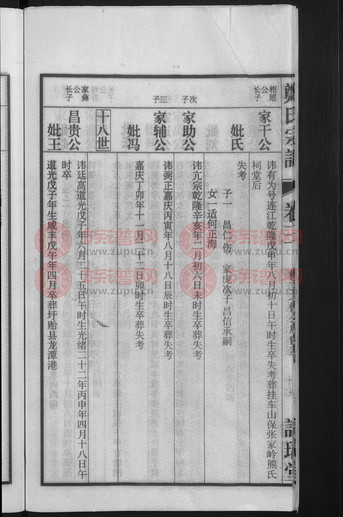 鄭氏宗譜
卷
相瑶公长子
家干公
讳有为号连江乾隆戊申年八月初十日午时生卒失考葬挂车山保张家岭熊氏
祠堂后
妣氏
失考
子一 昌仁伤 家庞次子昌信承嗣
女一适何正海
次子
家助公
讳亢宗乾隆辛亥年二月初八日未时生卒葬失考
三子
家辅公
讳弼正嘉庆丙寅年八月十八日辰时生卒葬失考
妣冯
嘉庆丁卯年十一月二十二日卯时生卒葬失考
十八世
家彝公长子
昌贵公
讳廷高道光戊子年六月二十五日午时生光绪二十二年丙申年四月十八日午
时卒
妣王
道光戊子年生咸丰戊午年四月卒葬圩贻县龙潭港
族谱网
www.zupu.cn